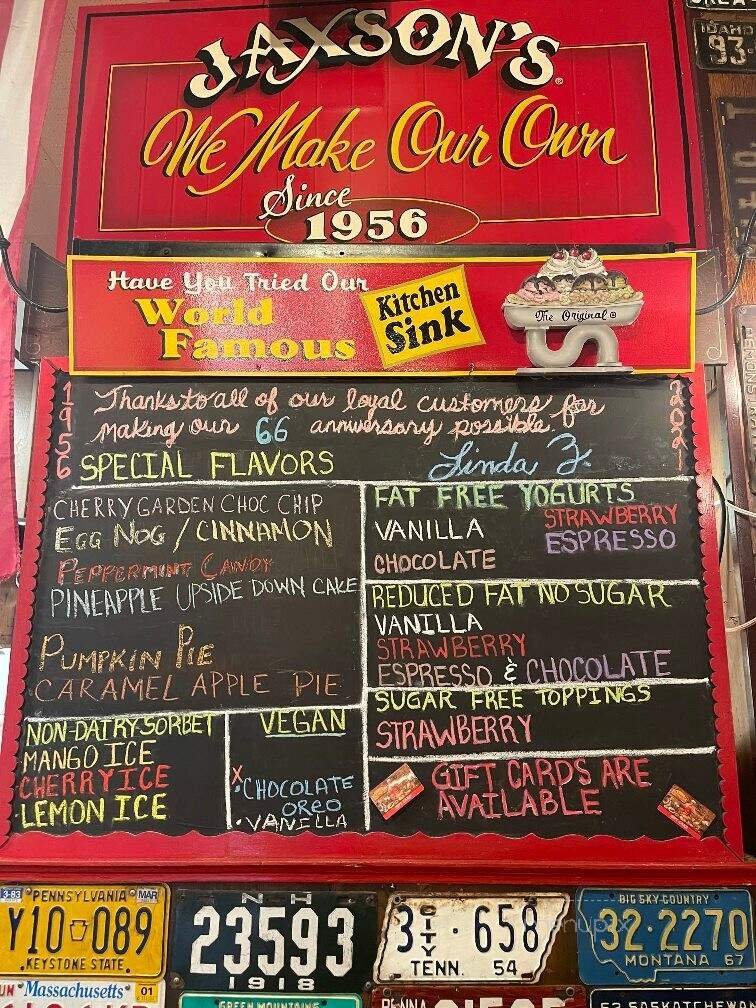 JAXSON'S
We Make Our Own
Since
1956
IDAHO
93
Have You Tried Our
World
Famous
Kitchen
Sink
The Original
1956
2021
Thanks to all of our loyal customers for
making our 66 anniversary possible.
SPECIAL FLAVORS
Linda Z.
CHERRY GARDEN CHOC CHIP
EGG NOG / CINNAMON
PEPPERMINT CANDY
PINEAPPLE UPSIDE DOWN CAKE
PUMPKIN PIE
CARAMEL APPLE PIE
FAT FREE YOGURTS
VANILLA STRAWBERRY
CHOCOLATE ESPRESSO
REDUCED FAT NO SUGAR
VANILLA
STRAWBERRY
ESPRESSO & CHOCOLATE
SUGAR FREE TOPPINGS
STRAWBERRY
NON-DAIRY SORBET
MANGO ICE
CHERRY ICE
LEMON ICE
VEGAN
X CHOCOLATE
OREO
• VANILLA
GIFT CARDS ARE
AVAILABLE
3-83 PENNSYLVANIA MAR
Y10 089
KEYSTONE STATE
NH
23593
1918
3 CITY 658
TENN. 54
BIG SKY COUNTRY
32·2270
MONTANA 67
Massachusetts 01
GREEN MOUNTAINS
PENNA
53 SASKATCHEWAN